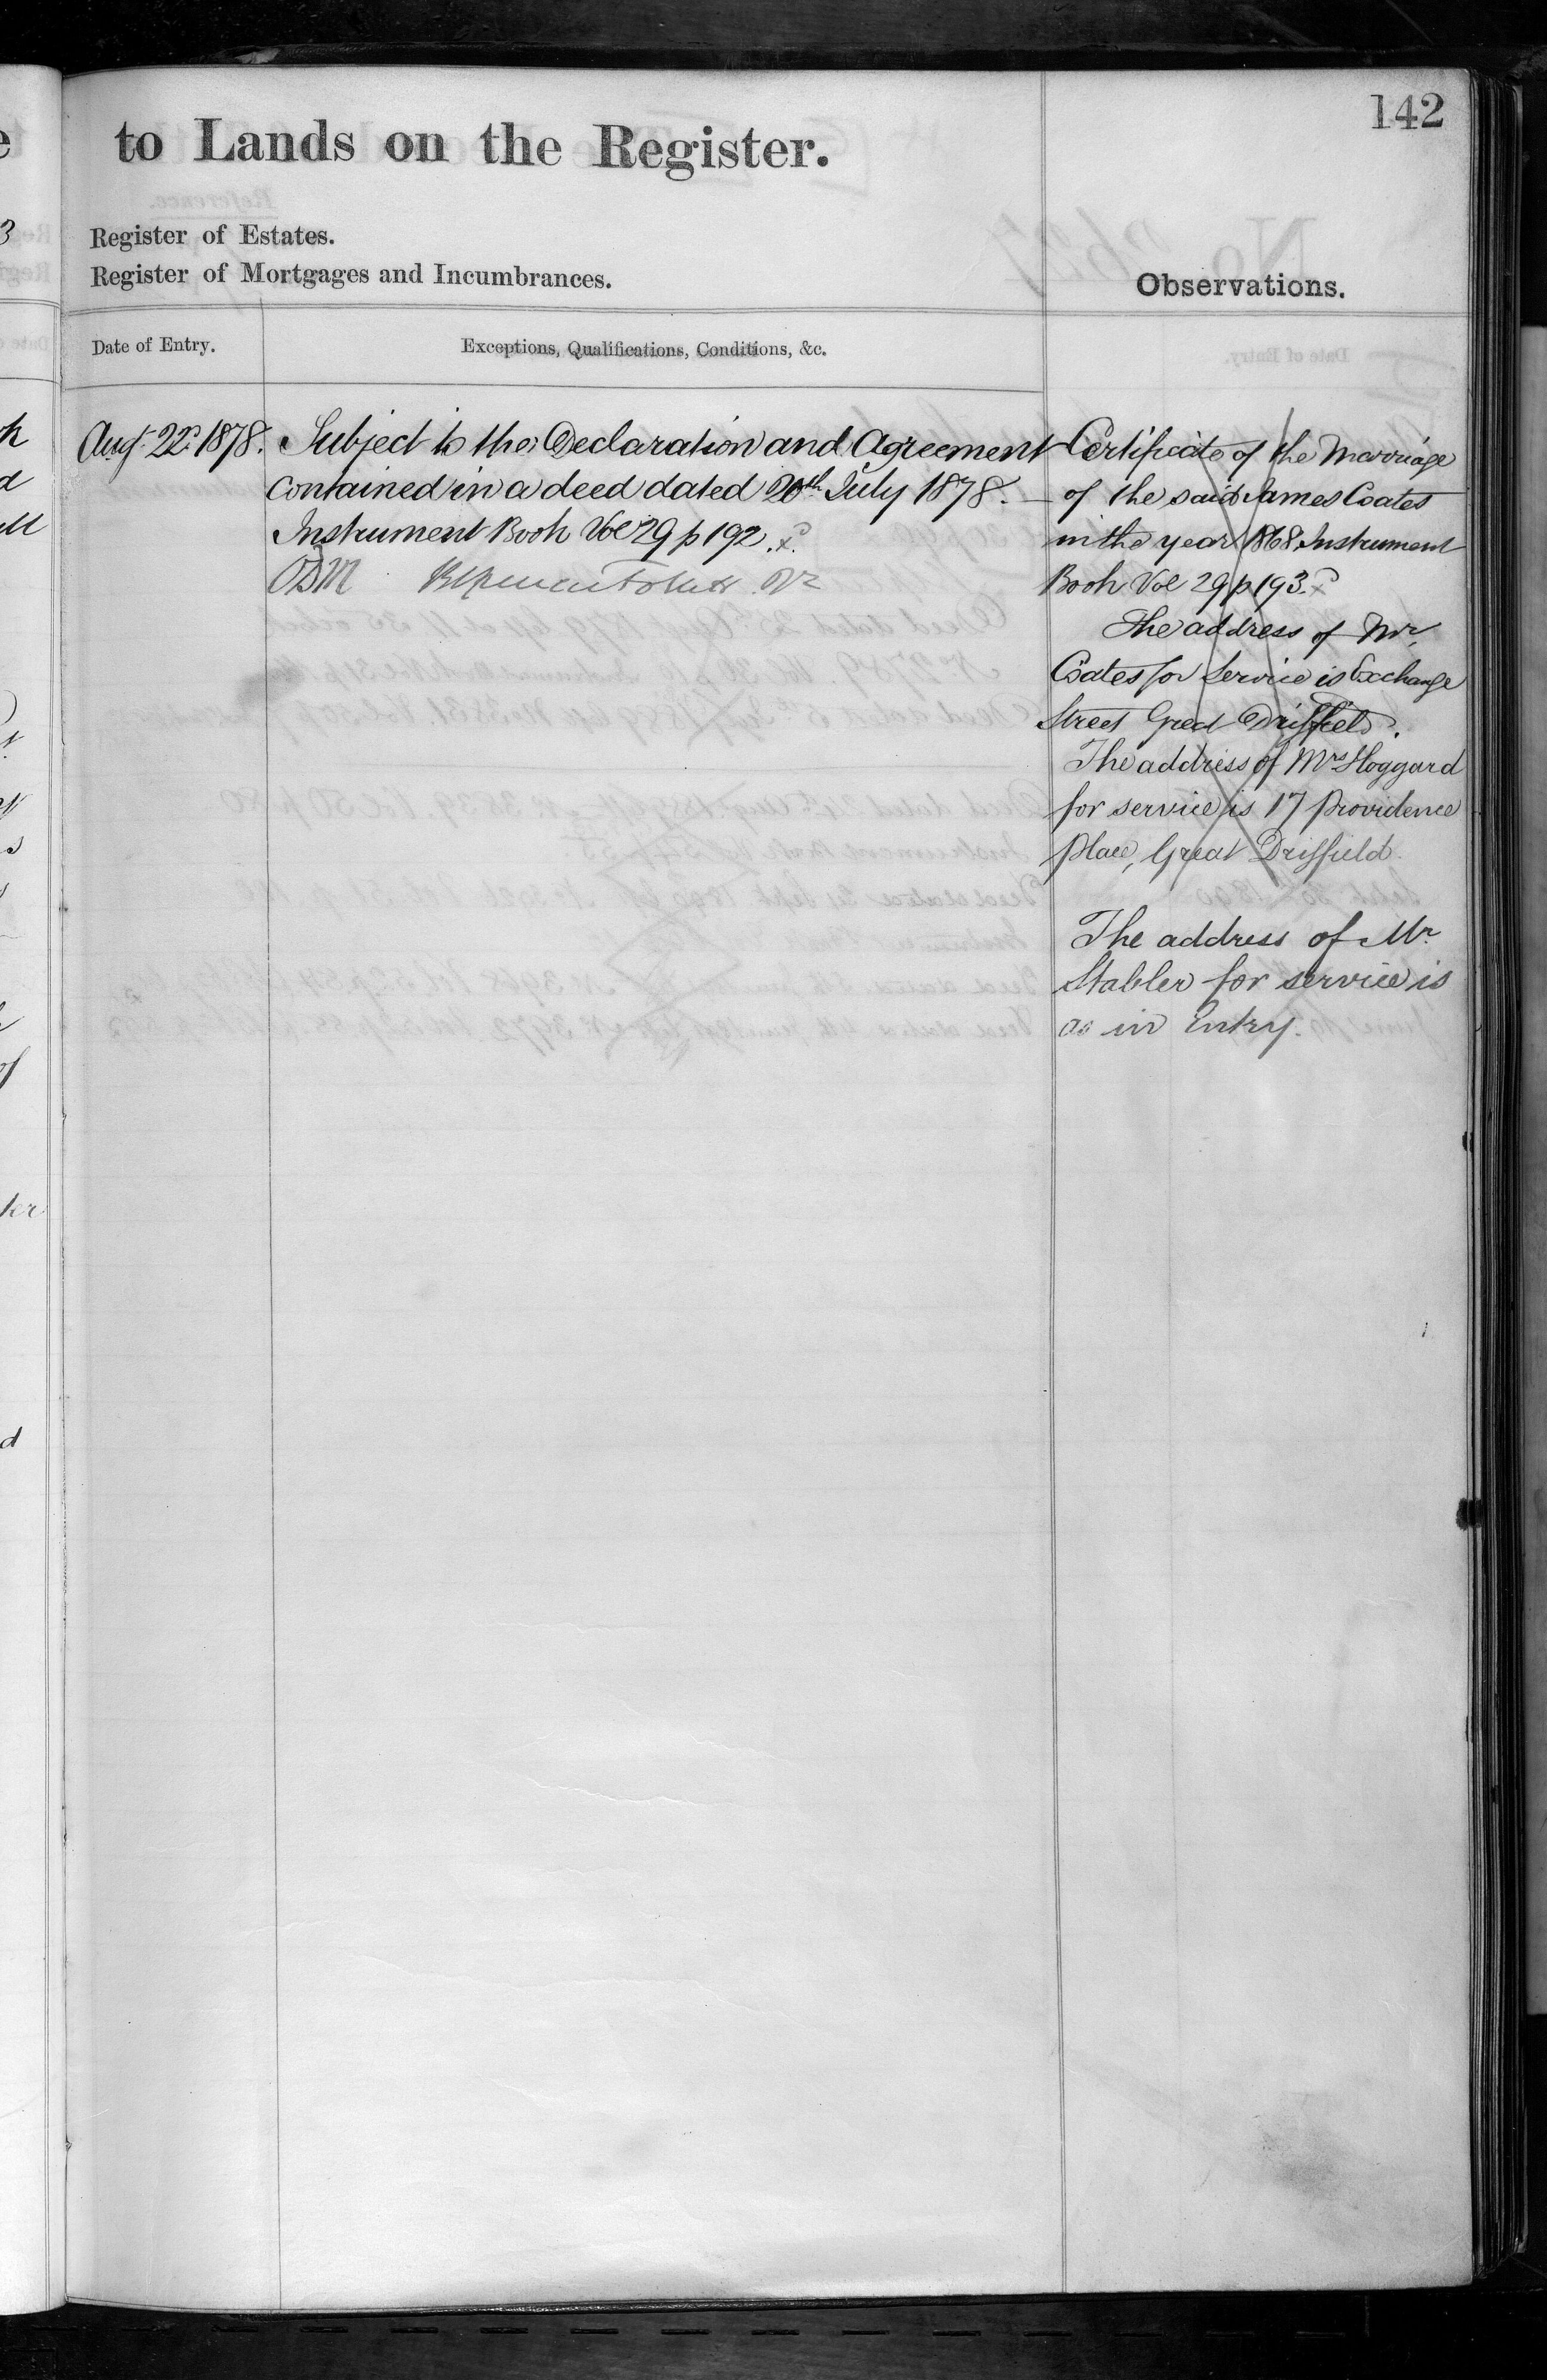 142
to Lands on the Register.
Register of Estates.
Register of Mortgages and Incumbrances.
Observations.
Date of Entry.
Exceptions, Qualifications, Conditions, &c.
Augt. 22d 1878.
Subject to the Declaration and Agreement
contained in a deed dated 20th July 1878.
Instrument Book Vol 29 p 192.
Certificate of the Marriage
of the said James Coates
in the year 1868 Instrument
Book Vol 29 p 193.
The address of Mr.
Coates for Service is Exchange
Street Great Driffield.
The address of Mrs Hoggard
for service is 17 Providence
place, Great Driffield.
The address of Mr.
Stabler for service is
as in Entry.